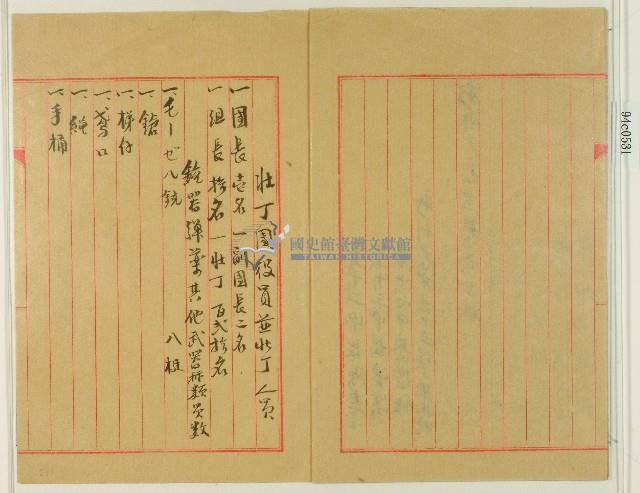 壮丁團役員並壮丁人員
一團長壱名 一副團長二名
一組長拾名 一壮丁百弐拾名
銃器弾薬其他武器称類員数
一、モーゼル銃 八梃
一、鎗
一、梯仔
一、鳶口
一、縄
一、手桶
國史館臺灣文獻館
TAIWAN HISTORICA
94c0531